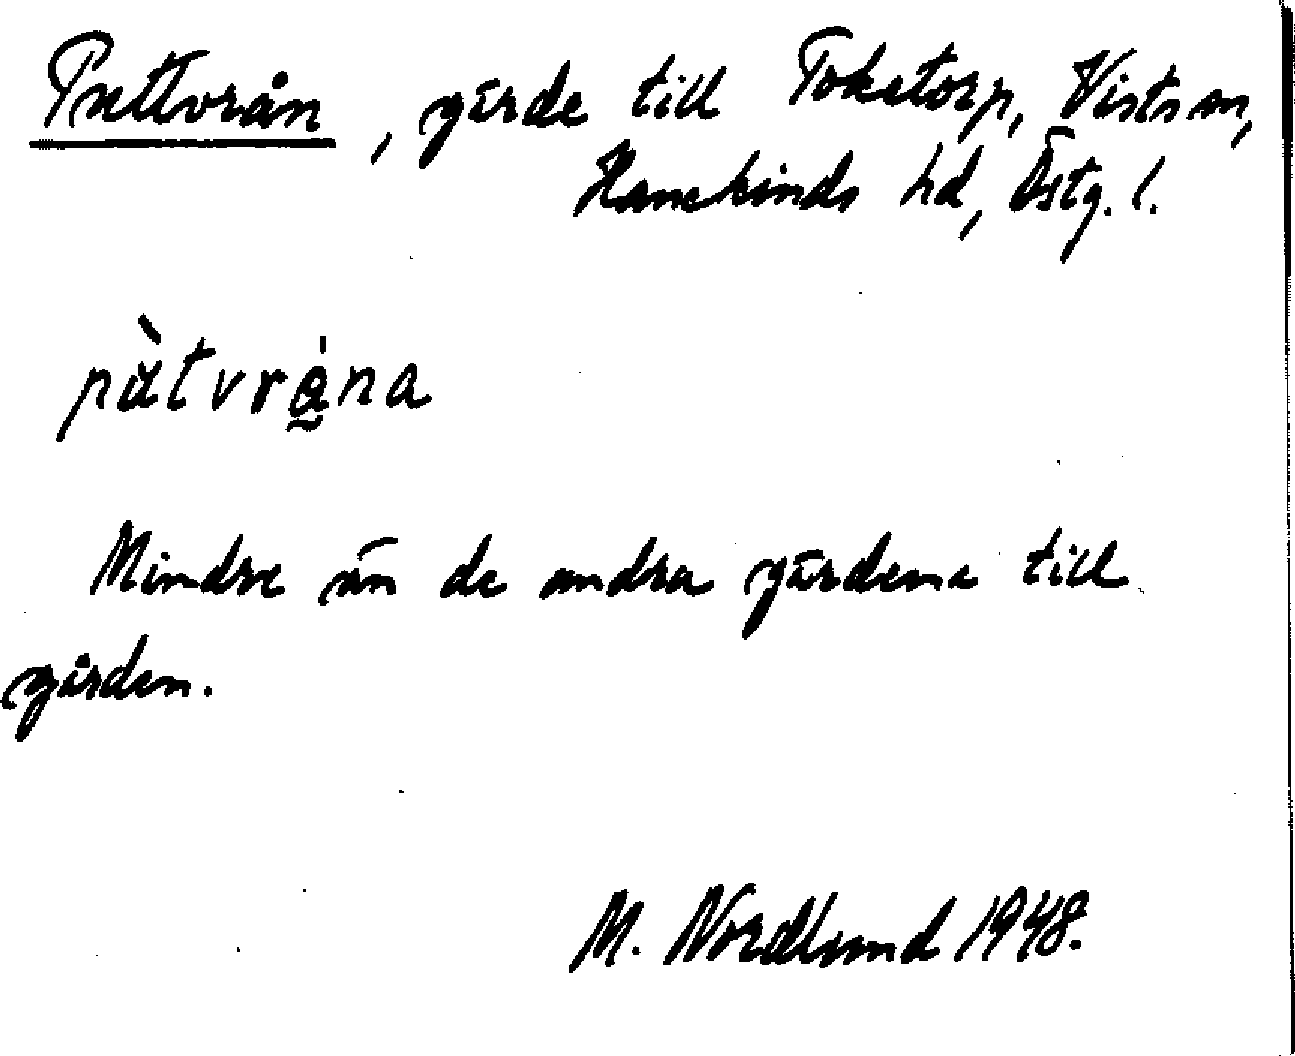 Puttvrån, gärde till Toketorp, Vists sn,
Hanekinds hd, Östg. l.
pùtvrá̰na
Mindre än de andra gärdena till
gården.
M. Nordlund 1948.